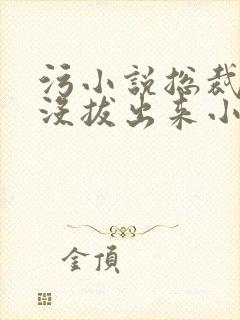 污小说总裁
没拔出来小
金頂